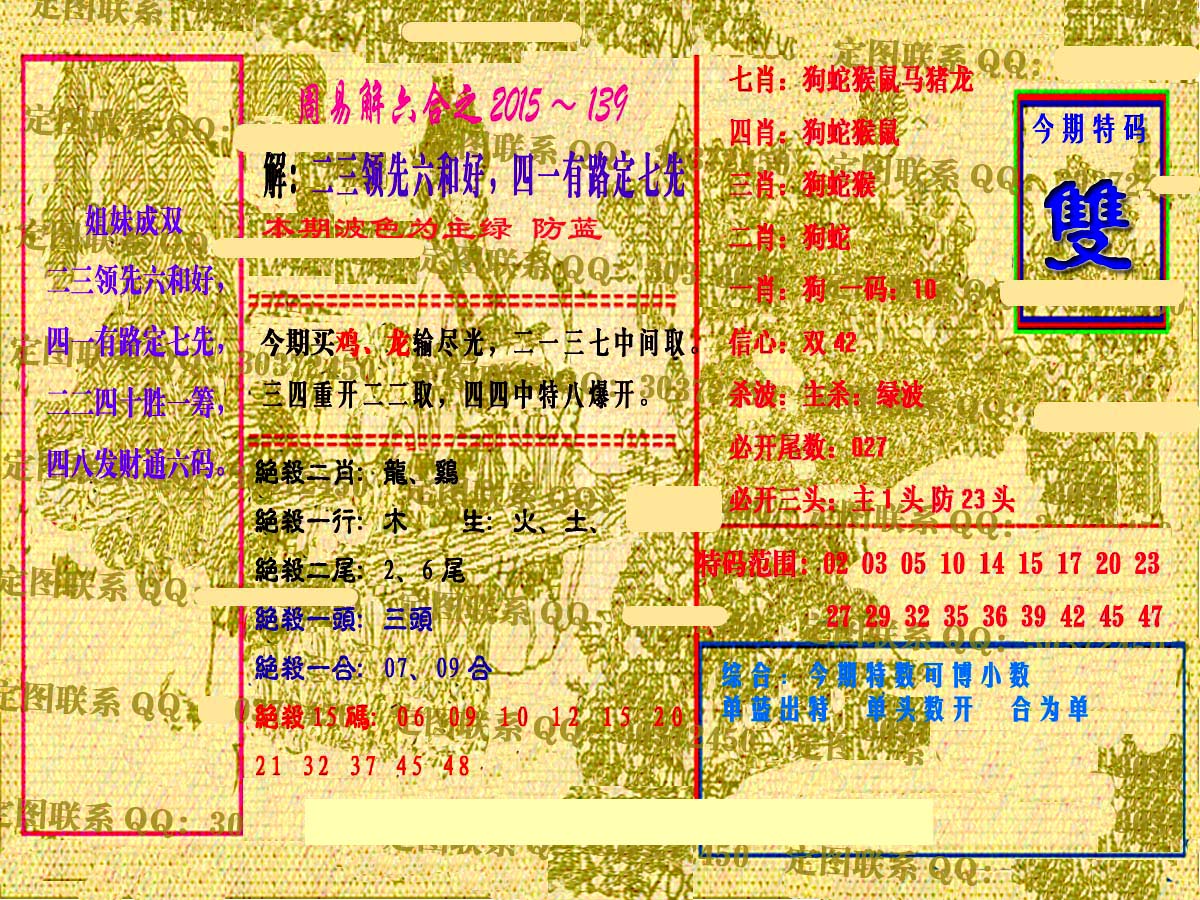 周易解六合之 2015～139
解：二三领先六和好，四一有路定七先
本期波色为主绿 防蓝
姐妹成双
二三领先六和好，
四一有路定七先，
二二四十胜一筹，
四八发财通六码。
今期买鸡、龙输尽光，二一三七中间取。
三四重开二二取，四四中特八爆开。
絕殺二肖：龍、鷄
絕殺一行：木 生：火、土、
絕殺二尾：2、6 尾
絕殺一頭：三頭
絕殺一合：07、09 合
絕殺 15 碼：06 09 10 12 15 20
21 32 37 45 48
七肖：狗蛇猴鼠马猪龙
四肖：狗蛇猴鼠
三肖：狗蛇猴
二肖：狗蛇
一肖：狗 一码：10
信心：双 42
杀波：主杀：绿波
必开尾数：027
必开三头：主 1 头 防 23 头
今期特码
雙
特码范围：02 03 05 10 14 15 17 20 23
27 29 32 35 36 39 42 45 47
综合：今期特数可博小数
单蓝出特 单头数开 合为单
定图联系 QQ：